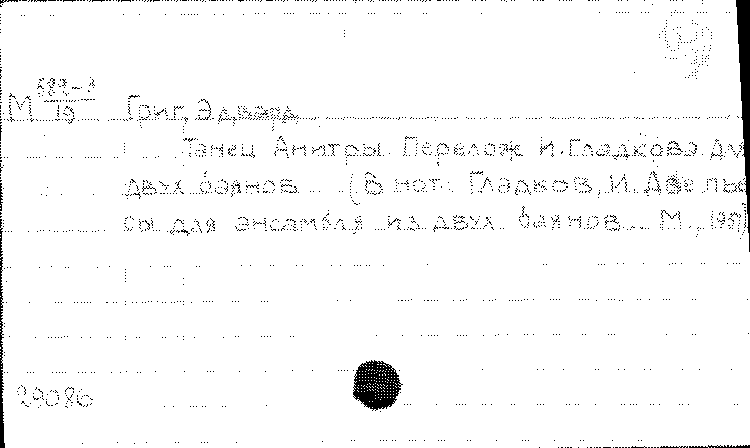 М 582-3/19 Григ, Эдвард
Танец Анитры. Перелож. И. Гладкова для
двух баянов. (В нот.: Гладков, И. Две пье
сы для ансамбля из двух баянов. М., 1957)
29086